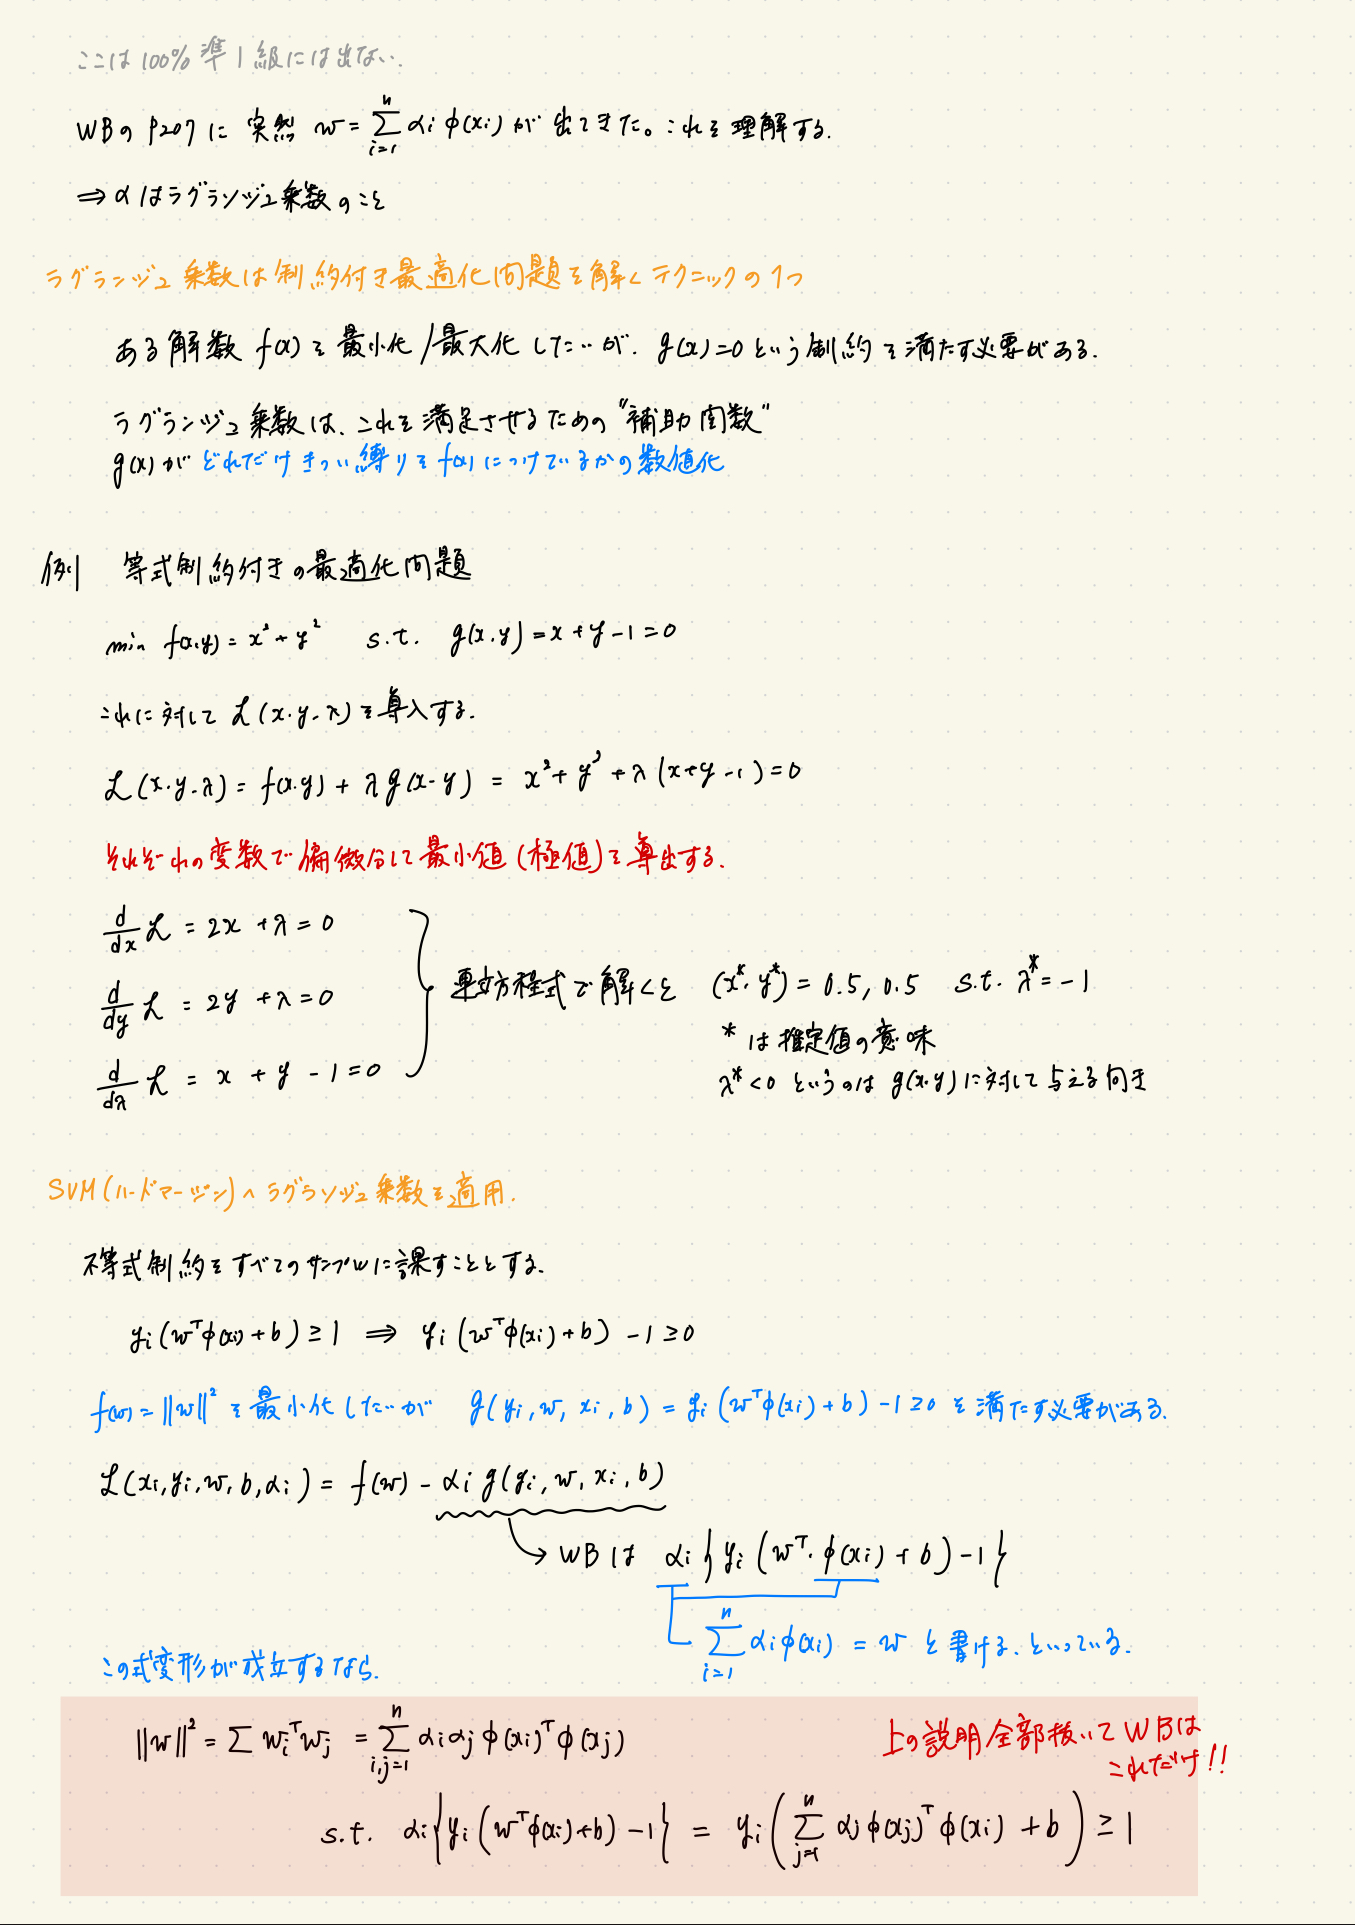 ここは100%準1級には出ない.
WBのP207に突然 w=Σ_{i=1}^{n} αi φ(xi) が出てきた。これを理解する.
⇒αはラグランジュ乗数のこと
ラグランジュ乗数は制約付き最適化問題を解くテクニックの1つ
ある解数 f(x)を最小化/最大化したいが. g(x)=0という制約を満たす必要がある.
ラグランジュ乗数は、これを満足させるための"補助関数"
g(x)がどれだけきつい縛りをf(x)につけているかの数値化
例 等式制約付きの最適化問題
min f(x,y)=x²+y² s.t. g(x,y)=x+y-1=0
これに対して ℒ(x,y,λ)を導入する.
ℒ(x,y,λ)= f(x,y)+λg(x,y) = x²+y²+λ(x+y-1)=0
それぞれの変数で偏微分して最小値(極値)を導出する.
d/dx ℒ = 2x+λ=0
d/dy ℒ = 2y+λ=0
d/dλ ℒ = x+y-1=0
連立方程式で解くと (x*,y*)=0.5, 0.5 s.t. λ*=-1
* は推定値の意味
λ*<0 というのは g(x,y)に対して与える向き
SVM(ハードマージン)へラグランジュ乗数を適用.
不等式制約をすべてのサンプルに課すこととする.
yi(wᵀφ(xi)+b)≥1 ⇒ yi(wᵀφ(xi)+b)-1≥0
f(w)=||w||²を最小化したいが g(yi,w,xi,b)=yi(wᵀφ(xi)+b)-1≥0 を満たす必要がある.
ℒ(xi,yi,w,b,αi)= f(w)-αi g(yi,w,xi,b)
→ WBは αi{yi(wᵀ·φ(xi)+b)-1}
Σ_{i=1}^{n} αiφ(xi) = w と書ける、といっている.
この式変形が成立するなら.
||w||²=Σ wiᵀwj =Σ_{i,j=1}^{n} αiαjφ(xi)ᵀφ(xj)
上の説明全部抜いてWBは
これだけ!!
s.t. αi{yi(wᵀφ(xi)+b)-1} = yi(Σ_{j=1}^{n} αjφ(xj)ᵀφ(xi)+b)≥1